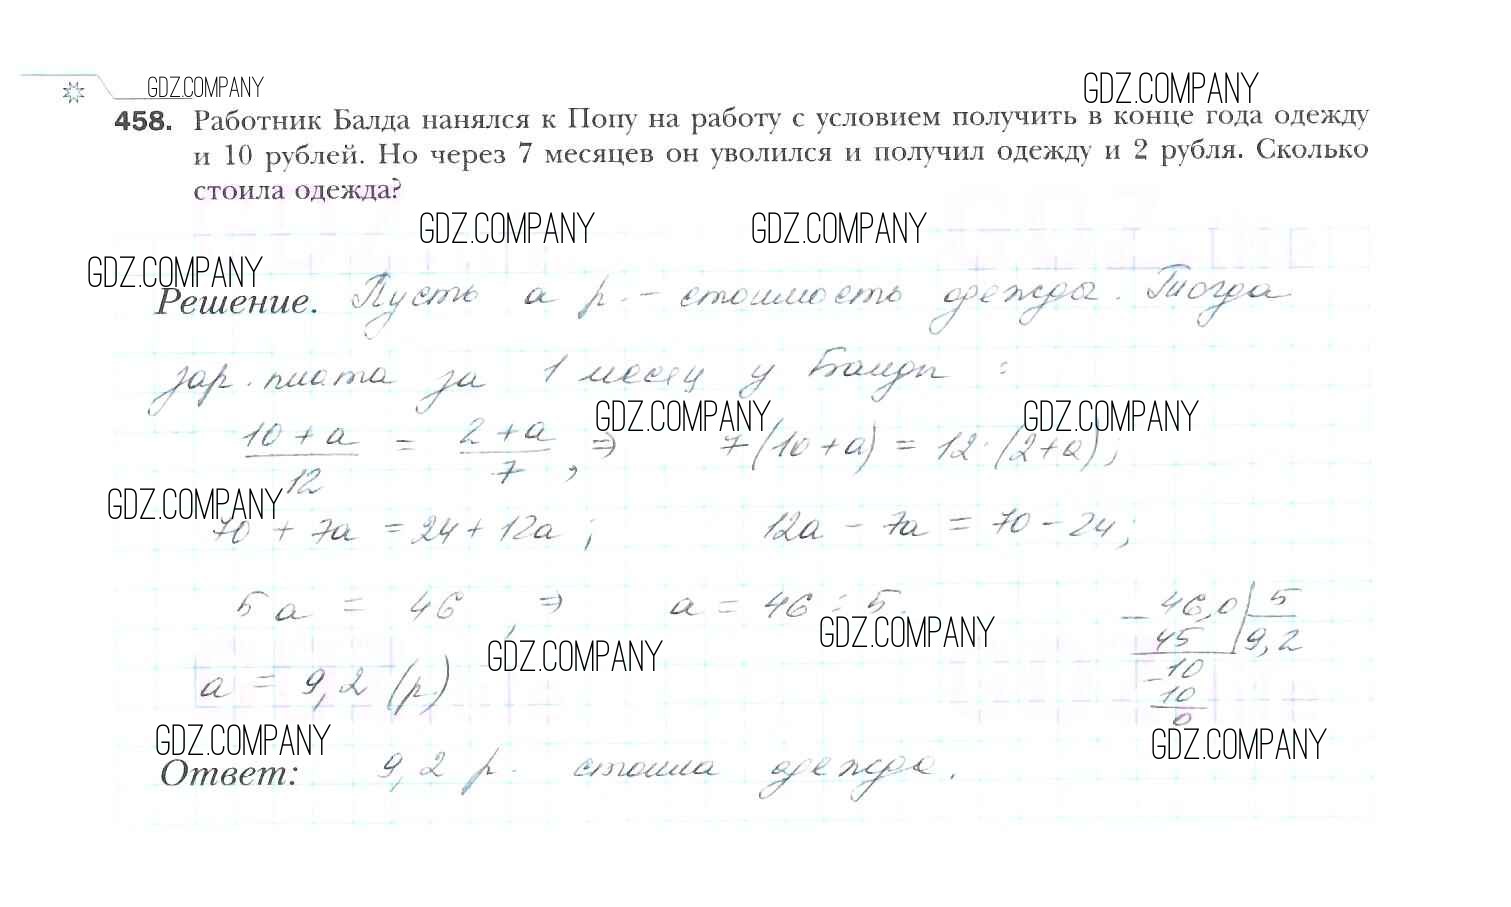 GDZ.COMPANY
GDZ.COMPANY
458. Работник Балда нанялся к Попу на работу с условием получить в конце года одежду
и 10 рублей. Но через 7 месяцев он уволился и получил одежду и 2 рубля. Сколько
стоила одежда?
GDZ.COMPANY GDZ.COMPANY
GDZ.COMPANY
Решение. Пусть а р. – стоимость одежды. Тогда
зар. плата за 1 месяц у Балды :
GDZ.COMPANY GDZ.COMPANY
(10 + a)/12 = (2 + a)/7, ⇒ 7(10 + a) = 12·(2 + a);
GDZ.COMPANY
70 + 7a = 24 + 12a; 12a – 7a = 70 – 24;
5a = 46, ⇒ a = 46 : 5.
GDZ.COMPANY
GDZ.COMPANY
a = 9,2 (р)
46,0 | 5
45 | 9,2
10
10
0
GDZ.COMPANY
GDZ.COMPANY
Ответ: 9,2 р. стоила одежда.